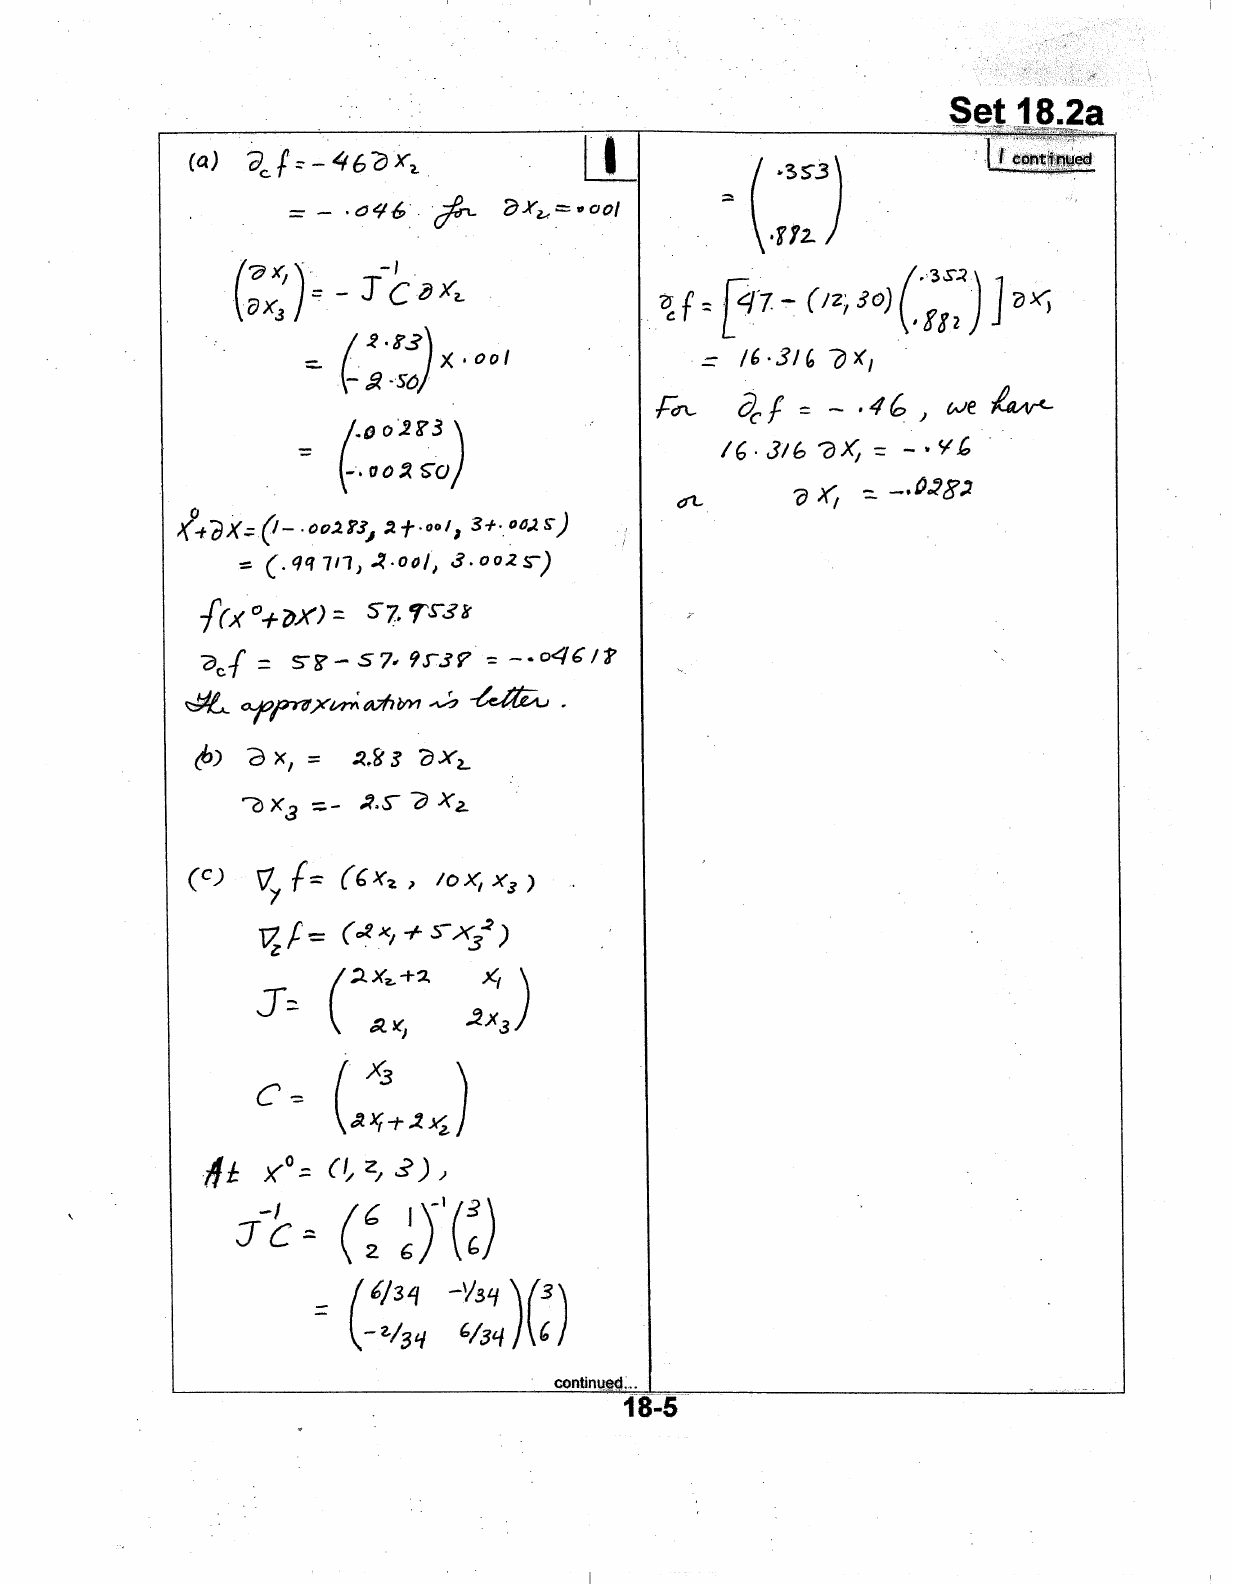 Set 18.2a
1
(a) ∂c f = -46 ∂x₂
= - .046 for ∂x₂ = .001
(∂x₁ ; ∂x₃) = - J⁻¹ C ∂x₂
= (2.83 ; -2.50) x .001
= (.00283 ; -.00250)
X⁰+∂X = (1-.00283, 2+.001, 3+.0025)
= (.99717, 2.001, 3.0025)
f(X⁰+∂X) = 57.9538
∂c f = 58 - 57.9538 = -.04618
The approximation is better.
(b) ∂x₁ = 2.83 ∂x₂
∂x₃ = - 2.5 ∂x₂
(c) ∇y f = (6x₂, 10x₁x₃)
∇z f = (2x₁ + 5x₃²)
J = (2x₂+2 x₁ ; 2x₁ 2x₃)
C = (x₃ ; 2x₁+2x₂)
At X⁰ = (1, 2, 3),
J⁻¹C = (6 1 ; 2 6)⁻¹ (3 ; 6)
= (6/34 -1/34 ; -2/34 6/34) (3 ; 6)
continued...
1 continued
= (.353 ; .882)
∂c f = [47 - (12, 30) (.352 ; .882)] ∂x₁
= 16.316 ∂x₁
For ∂c f = - .46, we have
16.316 ∂x₁ = -.46
or ∂x₁ = -.0282
18-5